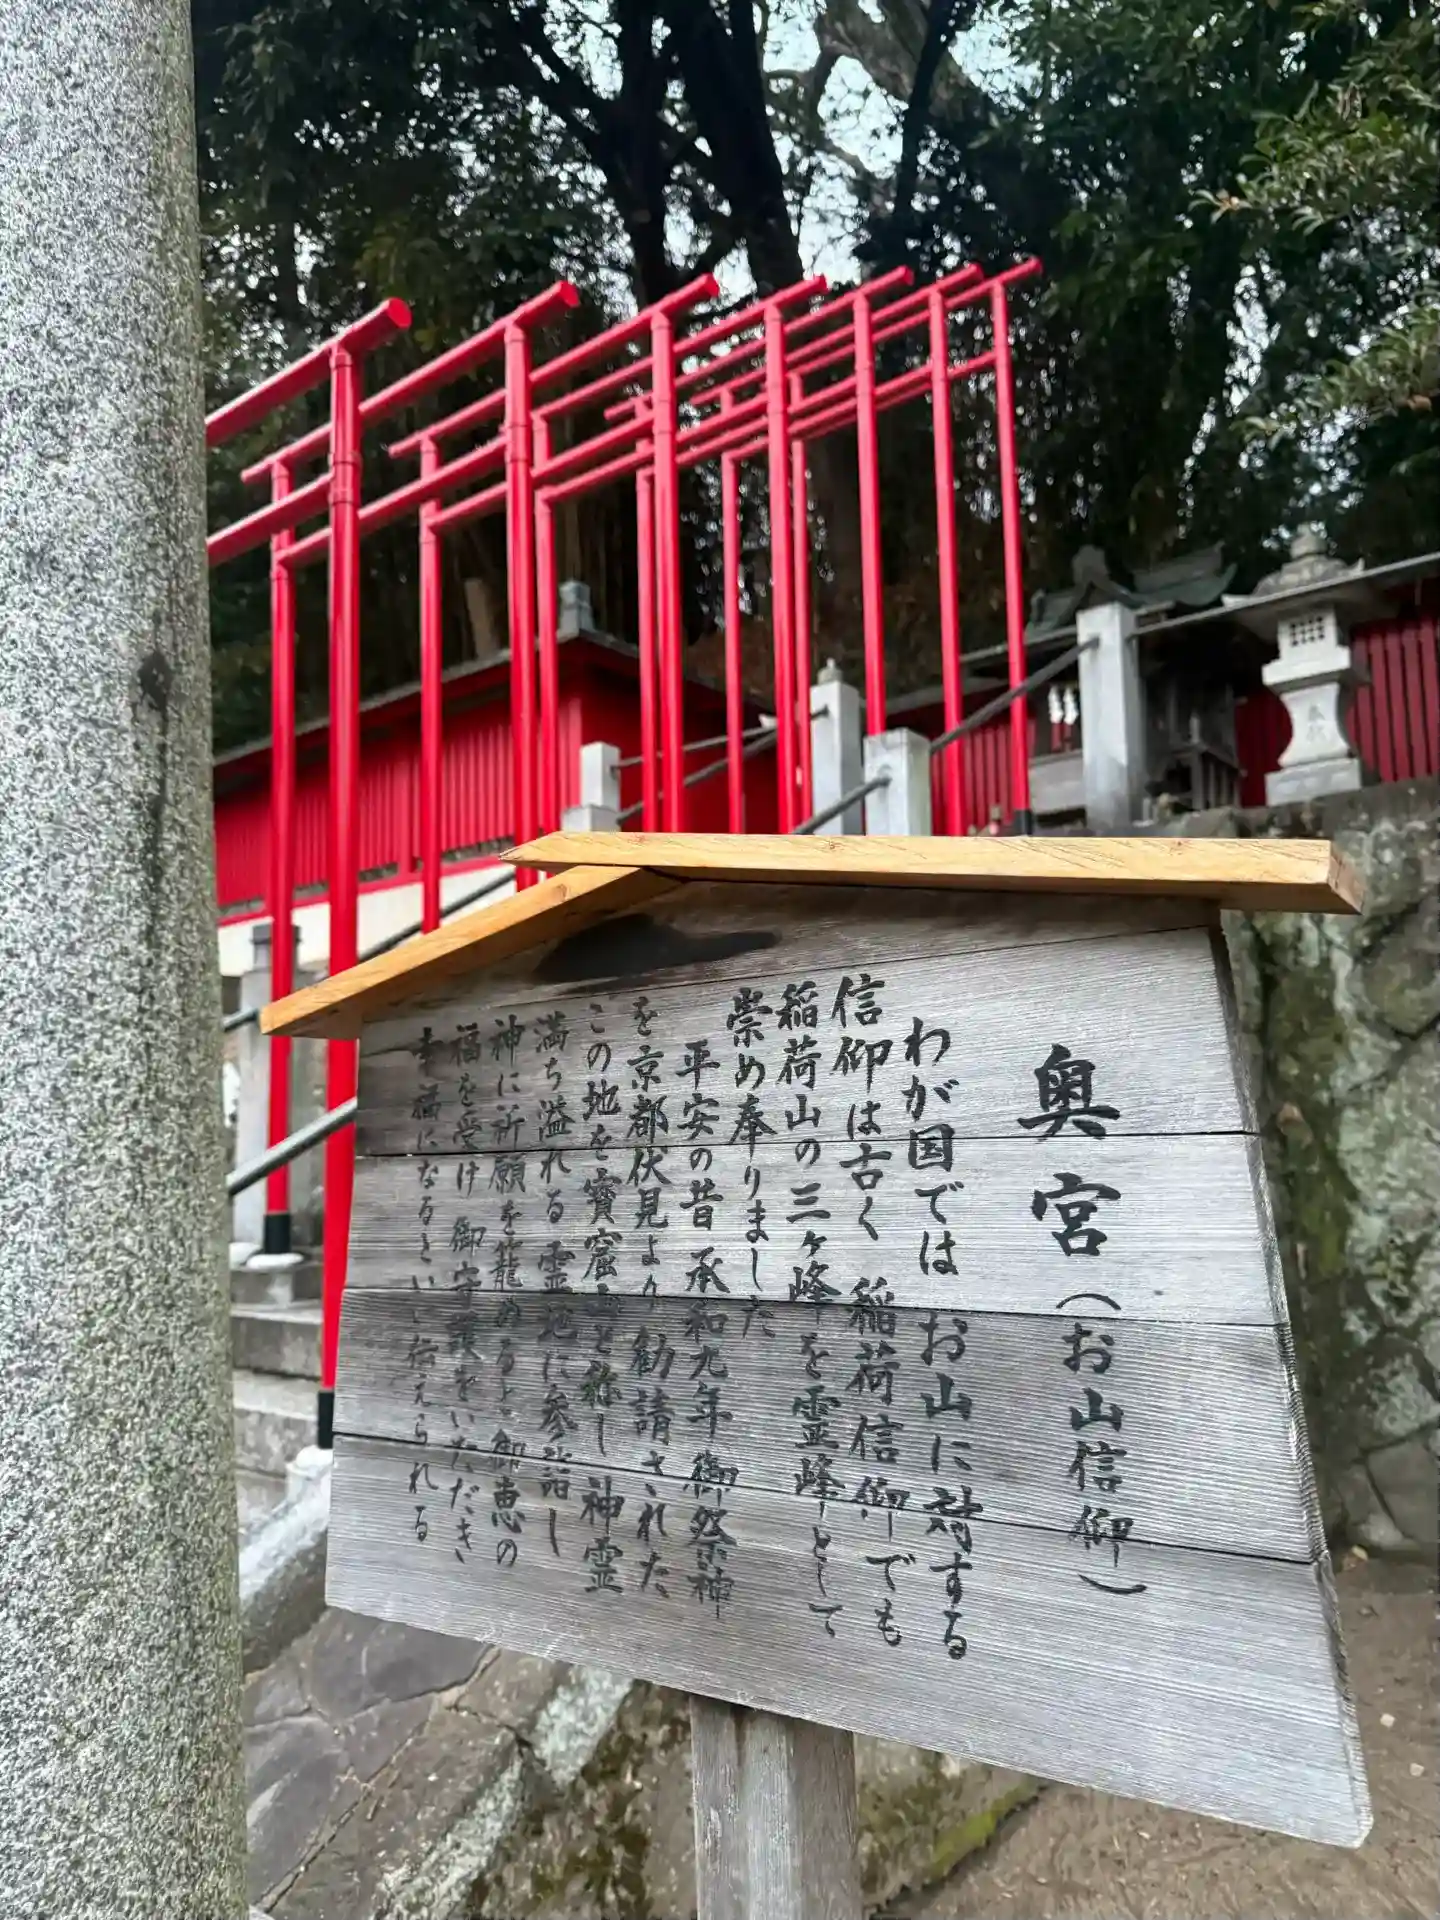 奥宮（お山信仰）
わが国では　お山に対する
信仰は古く　稲荷信仰でも
稲荷山の三ヶ峰を霊峰として
崇め奉りました
平安の昔　承和九年　御祭神
を京都伏見より勧請された
この地を寳窟山と称し　神霊
満ち溢れる霊地に参詣し
神に祈願を籠めると　御恵の
福を受け　御守護をいただき
幸福になるといい伝えられる